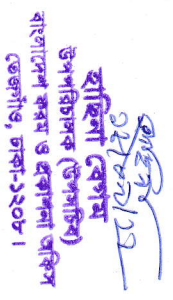 হাছিনা বেগম
উপপরিচালক (উপসচিব)
বাংলাদেশ ফরম ও প্রকাশনা অফিস
তেজগাঁও, ঢাকা-১২০৮।